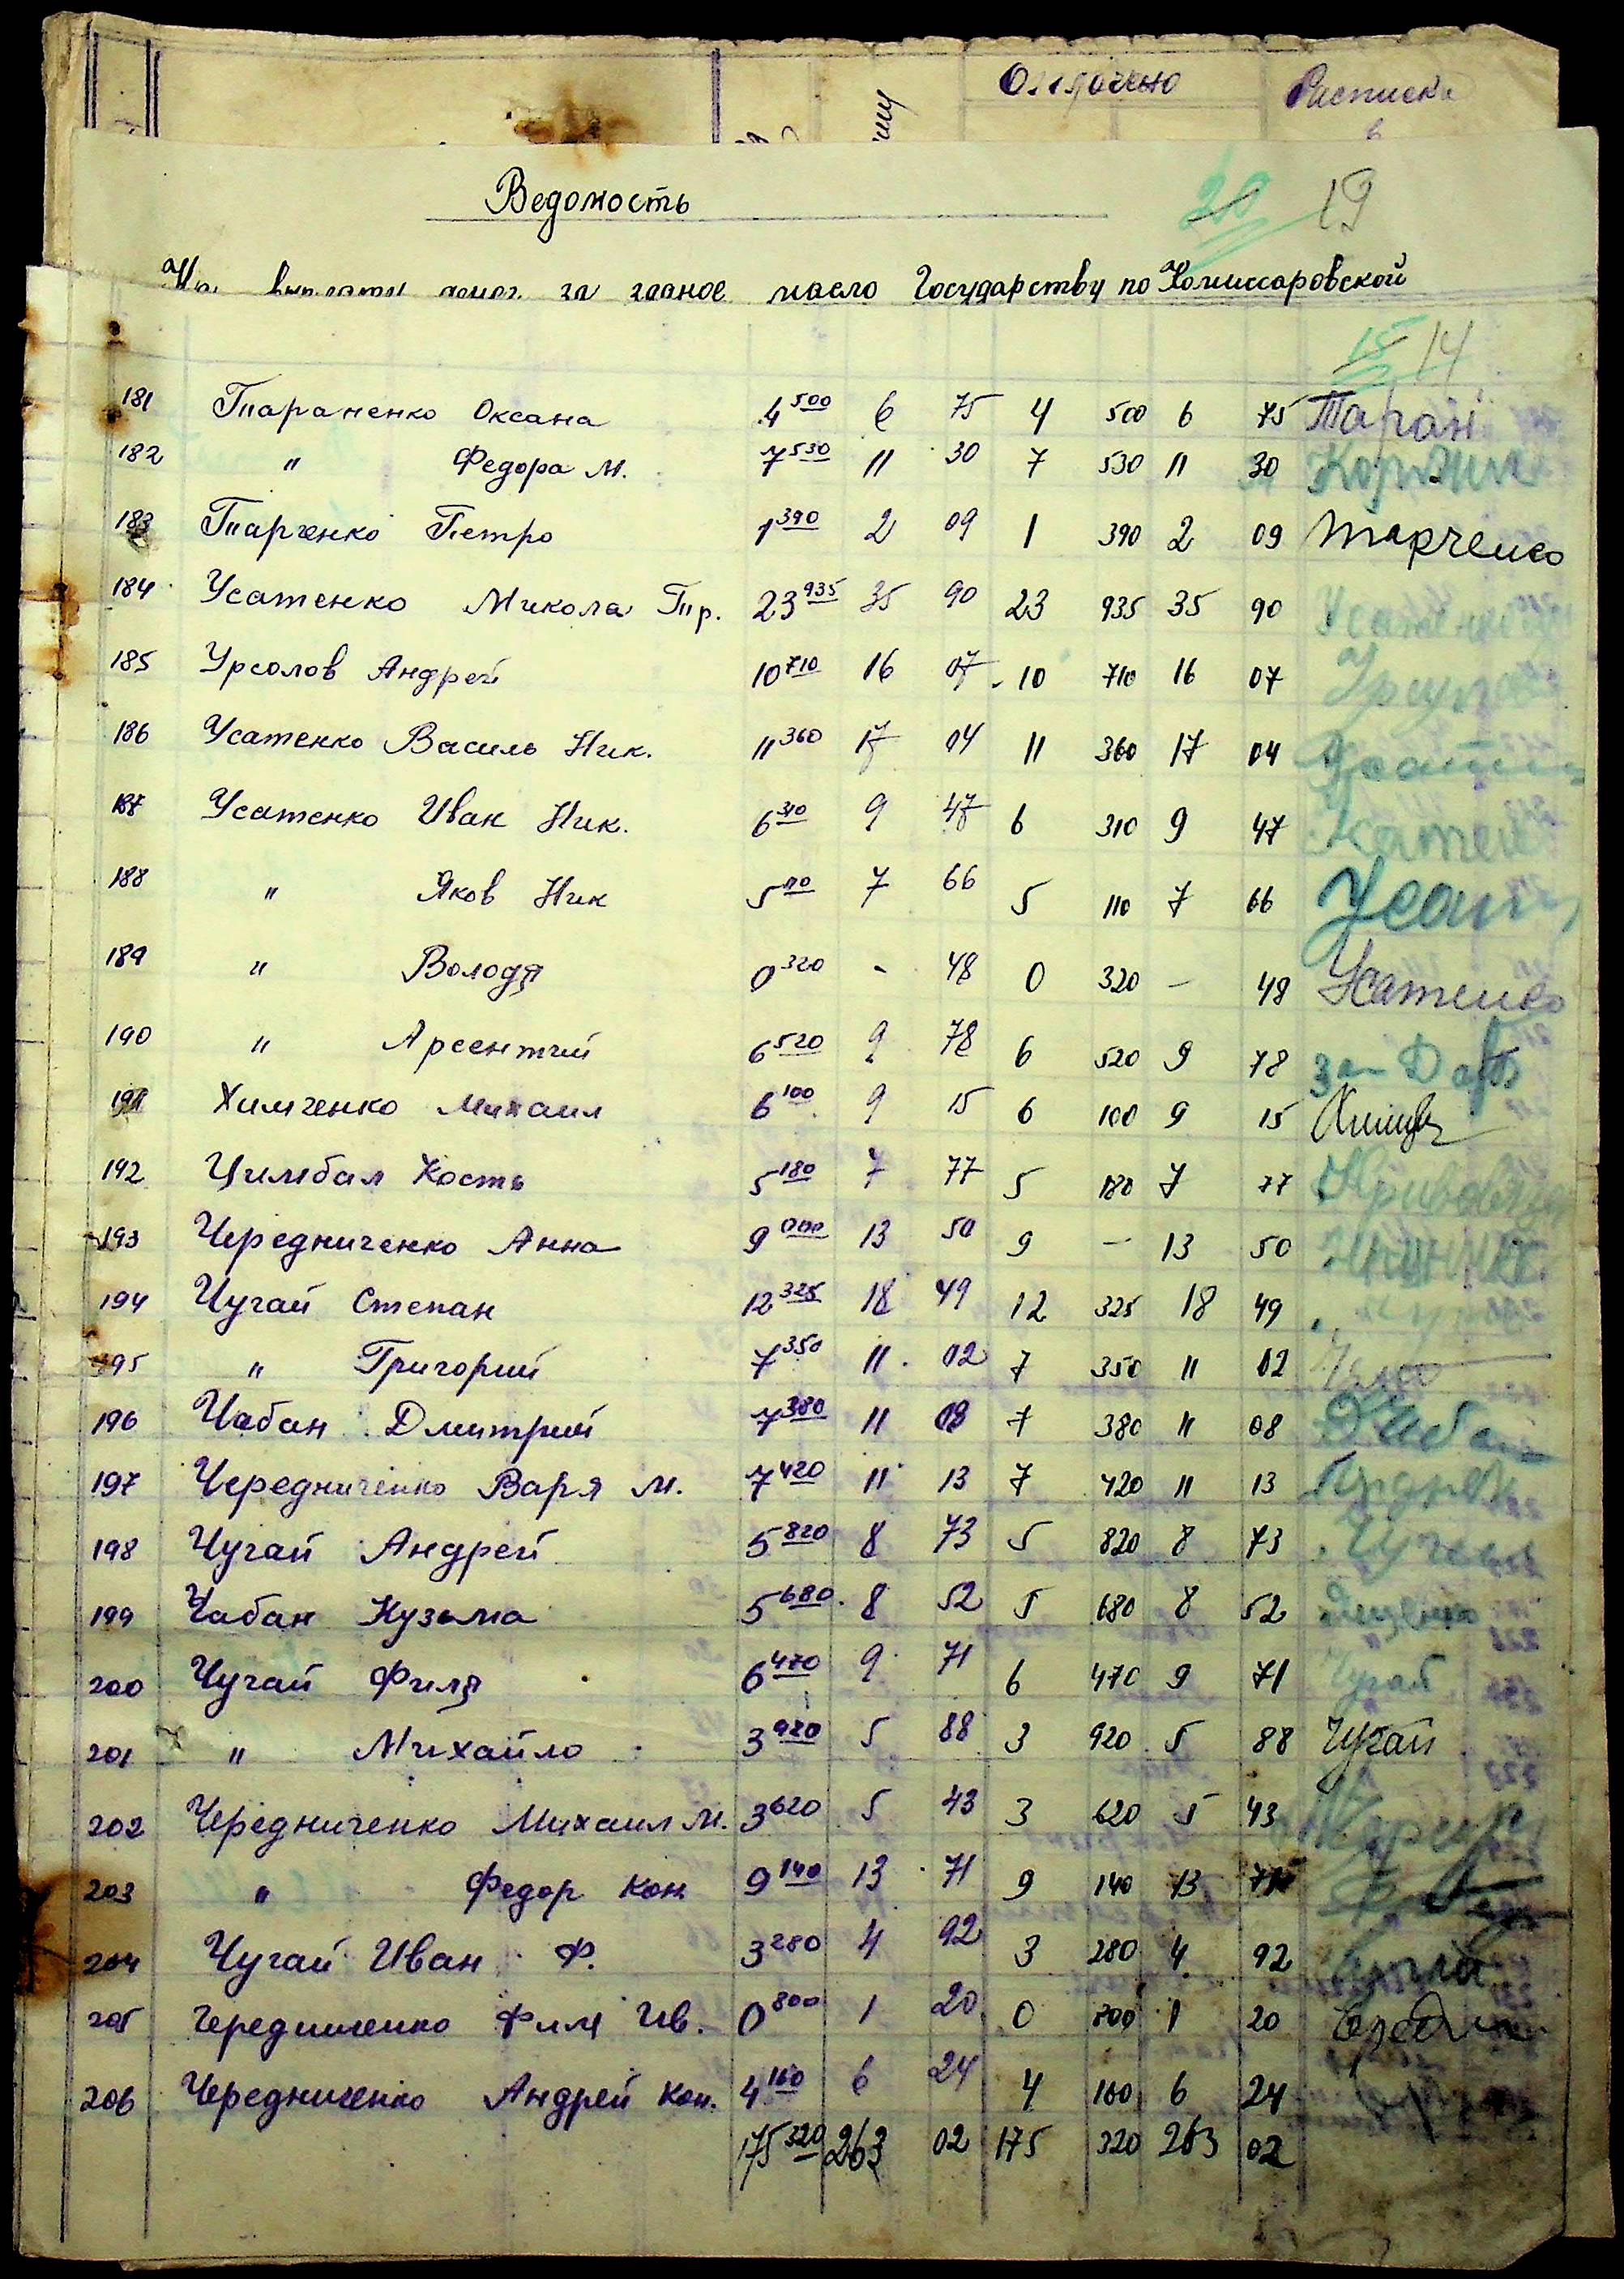 Оплачено Расписка
в
Ведомость 20 19
На выплату денег за зданое масло Государству по Комиссаровской
15 14
181 Тараненко Оксана 4 500 6 75 4 500 6 75 Таран
182 " Федора М. 7 530 11 30 7 530 11 30
183 Тарченко Петро 1 390 2 09 1 390 2 09 Тарченко
184 Усатенко Микола Пр. 23 935 35 90 23 935 35 90 Усатенко
185 Урсолов Андрей 10 710 16 07 10 710 16 07
186 Усатенко Василь Ник. 11 360 17 04 11 360 17 04
187 Усатенко Иван Ник. 6 310 9 47 6 310 9 47
188 " Яков Ник 5 110 7 66 5 110 7 66 Усат
189 " Володя 0 320 - 48 0 320 - 48 Усатенко
190 " Арсентий 6 520 9 78 6 520 9 78
191 Химченко Михаил 6 100 9 15 6 100 9 15
192 Цимбал Кость 5 180 7 77 5 180 7 77
193 Чередниченко Анна 9 000 13 50 9 - 13 50
194 Чугай Степан 12 325 18 49 12 325 18 49
195 " Григорий 7 350 11 02 7 350 11 02
196 Чабан Дмитрий 7 380 11 08 7 380 11 08
197 Чередниченко Варя М. 7 420 11 13 7 420 11 13
198 Чугай Андрей 5 820 8 73 5 820 8 73
199 Чабан Кузьма 5 680 8 52 5 680 8 52
200 Чугай Филя 6 470 9 71 6 470 9 71 Чугай
201 " Михайло 3 920 5 88 3 920 5 88 Чугай
202 Чередниченко Михаил М. 3 620 5 43 3 620 5 43
203 " Федор Кон 9 140 13 71 9 140 13 71
204 Чугай Иван Ф. 3 280 4 92 3 280 4 92
205 Чередниченко Ив. 0 800 1 20 0 800 1 20
206 Чередниченко Андрей Кон. 4 160 6 24 4 160 6 24
175 320 263 02 175 320 263 02